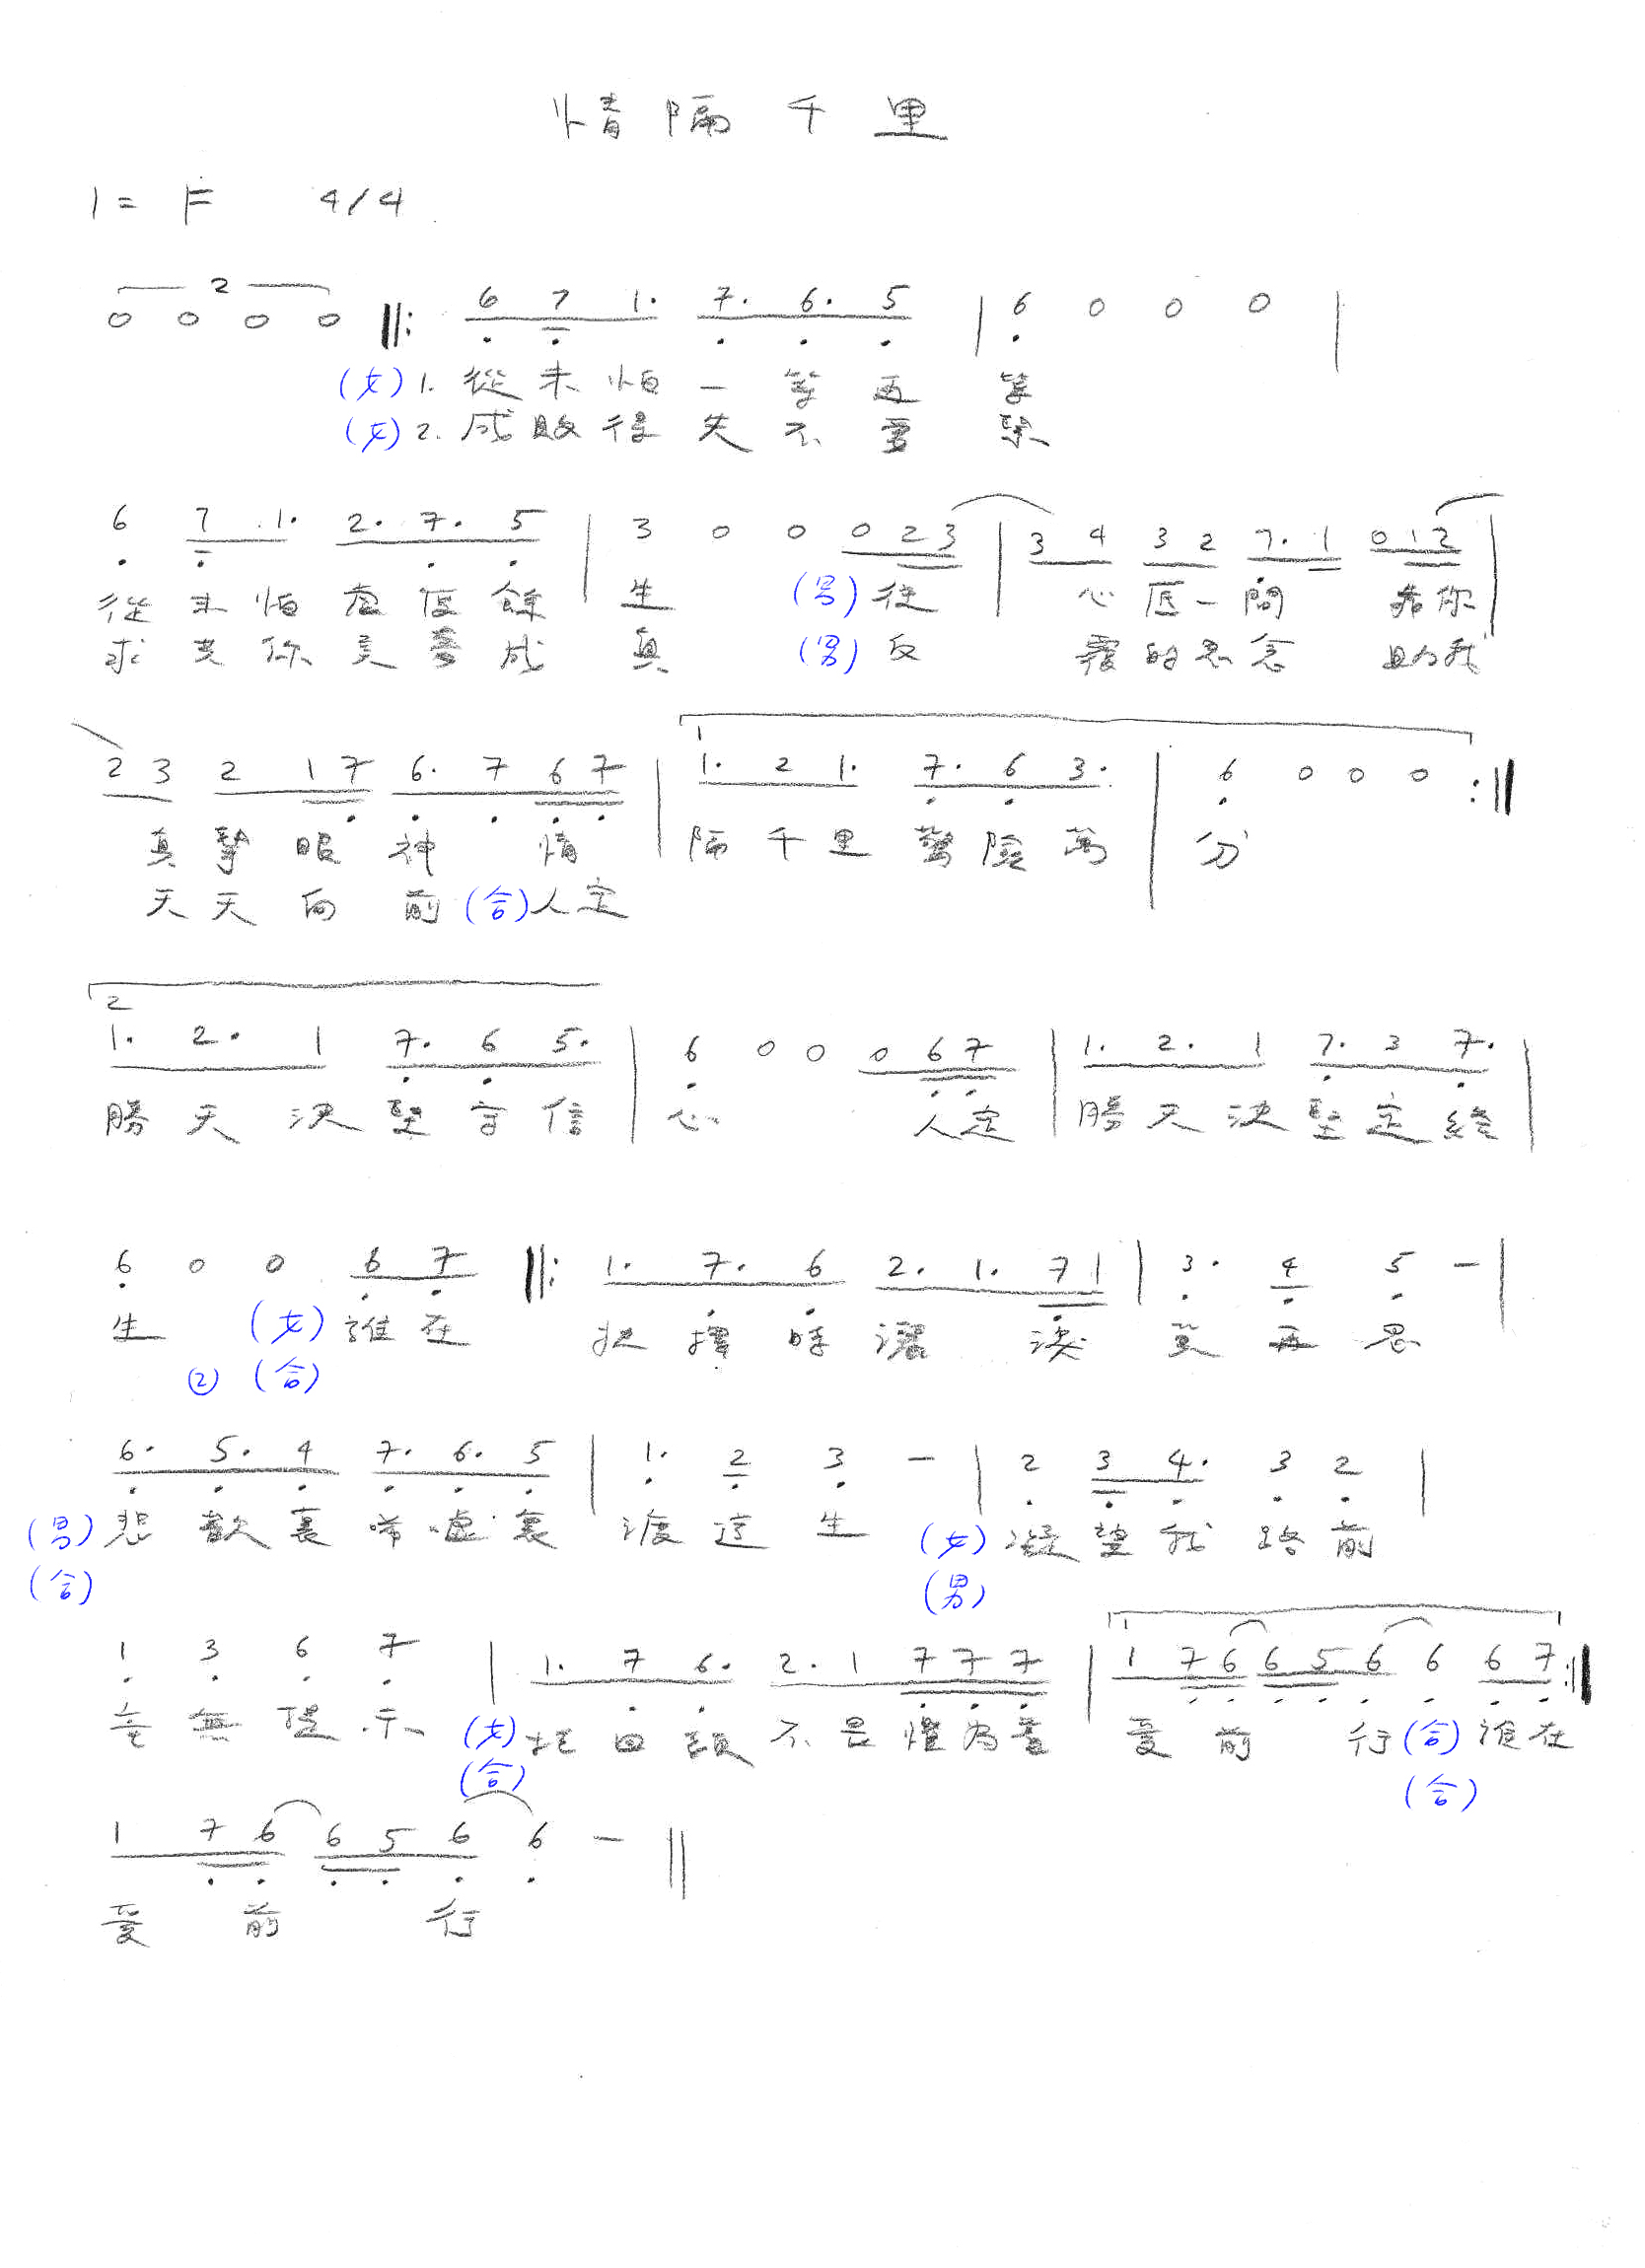 情隔千里
1= F 4/4
2
0 0 0 0 ‖: 6 7 1. 7. 6. 5 | 6 0 0 0 |
(女) 1. 從未怕一等再等
(女) 2. 成敗得失不要緊
6 7 1. 2. 7. 5 | 3 0 0 0 2 3 | 3 4 3 2 7. 1 0 1 2 |
從未怕虛度餘生 (男) 從心底一問 為你
求天你美夢成真 (男) 反覆的思念 助我
2 3 2 1 7 6. 7 6 7 | 1 1. 2 1. 7. 6 3. | 6 0 0 0 :‖
真摯眼神 情隔千里驚險萬分
天天向前 (合) 人定
2
1. 2. 1 7. 6 5. | 6 0 0 0 6 7 | 1. 2. 1 7. 3 7. |
勝天決堅守信心 人定勝天決堅定終
6 0 0 6 7 ‖: 1. 7. 6 2. 1. 7 1 | 3. 4 5 - |
生 (女) 誰在抉擇時 決 再思
② (合)
6. 5. 4 7. 6. 5 | 1. 2 3 - | 2 3 4. 3 2 |
(男) 悲歡裏唏噓裏渡這生 (女) 凝望我路前
(合) (男)
1 3 6 7 | 1. 7 6. 2. 1 7 7 7 | 1 1 7 6 6 5 6 6 6 7 :‖
全無提示 (女) 回頭不是惟為愛前行 (合) 誰在
(合) (合)
1 7 6 6 5 6 6 - ‖
愛前行